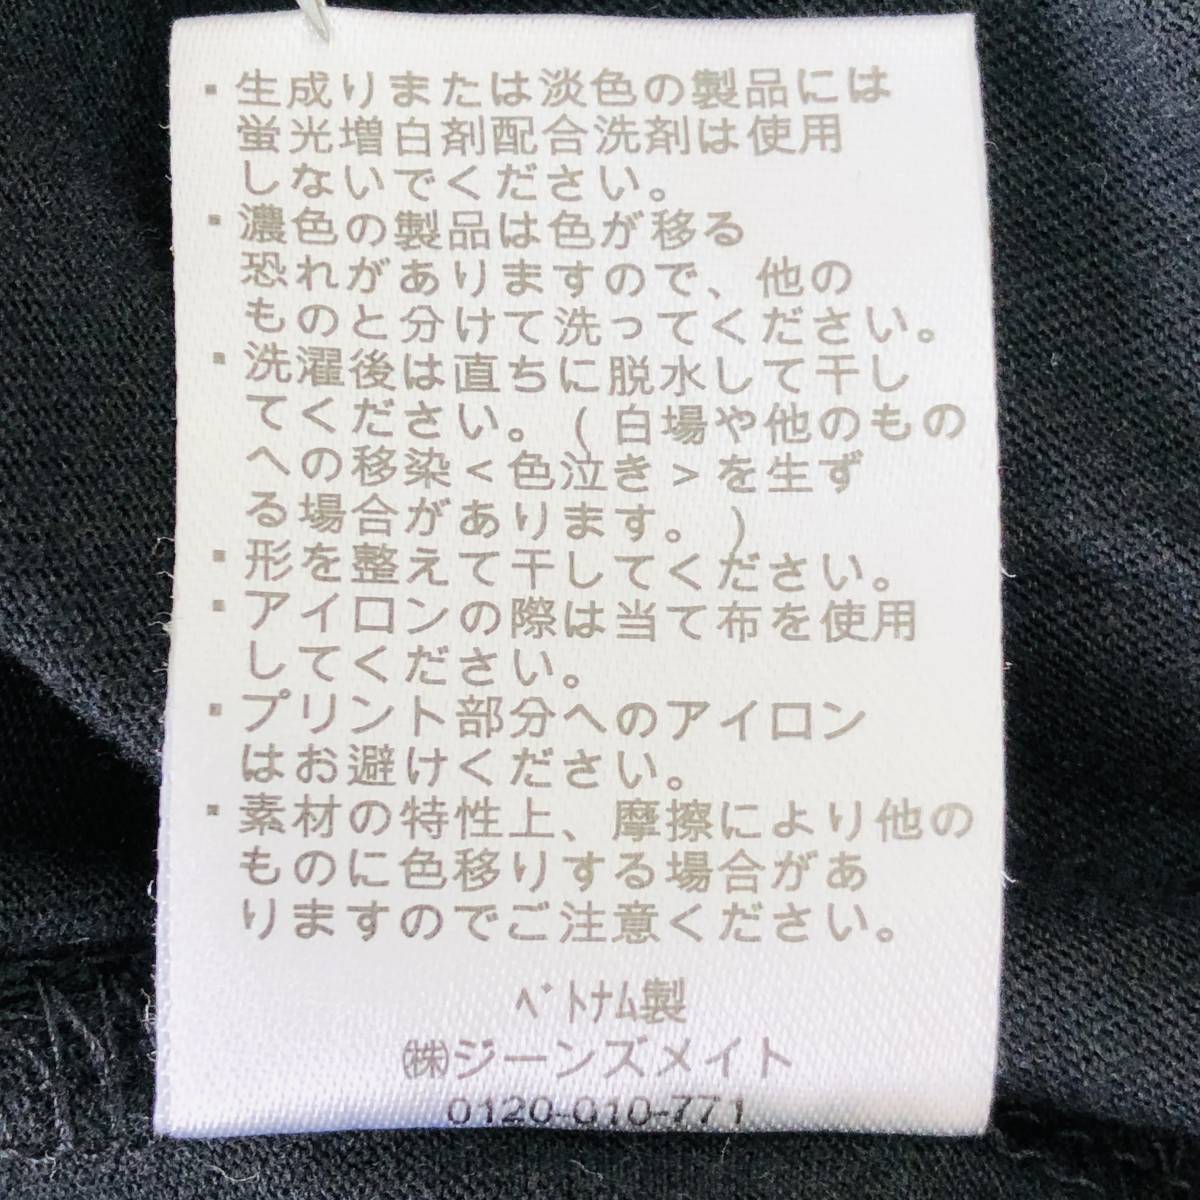 ・生成りまたは淡色の製品には
蛍光増白剤配合洗剤は使用
しないでください。
・濃色の製品は色が移る
恐れがありますので、他の
ものと分けて洗ってください。
・洗濯後は直ちに脱水して干し
てください。(白場や他のもの
への移染<色泣き>を生ず
る場合があります。)
・形を整えて干してください。
・アイロンの際は当て布を使用
してください。
・プリント部分へのアイロン
はお避けください。
・素材の特性上、摩擦により他の
ものに色移りする場合があ
りますのでご注意ください。
ﾍﾞﾄﾅﾑ製
㈱ジーンズメイト
0120-010-771